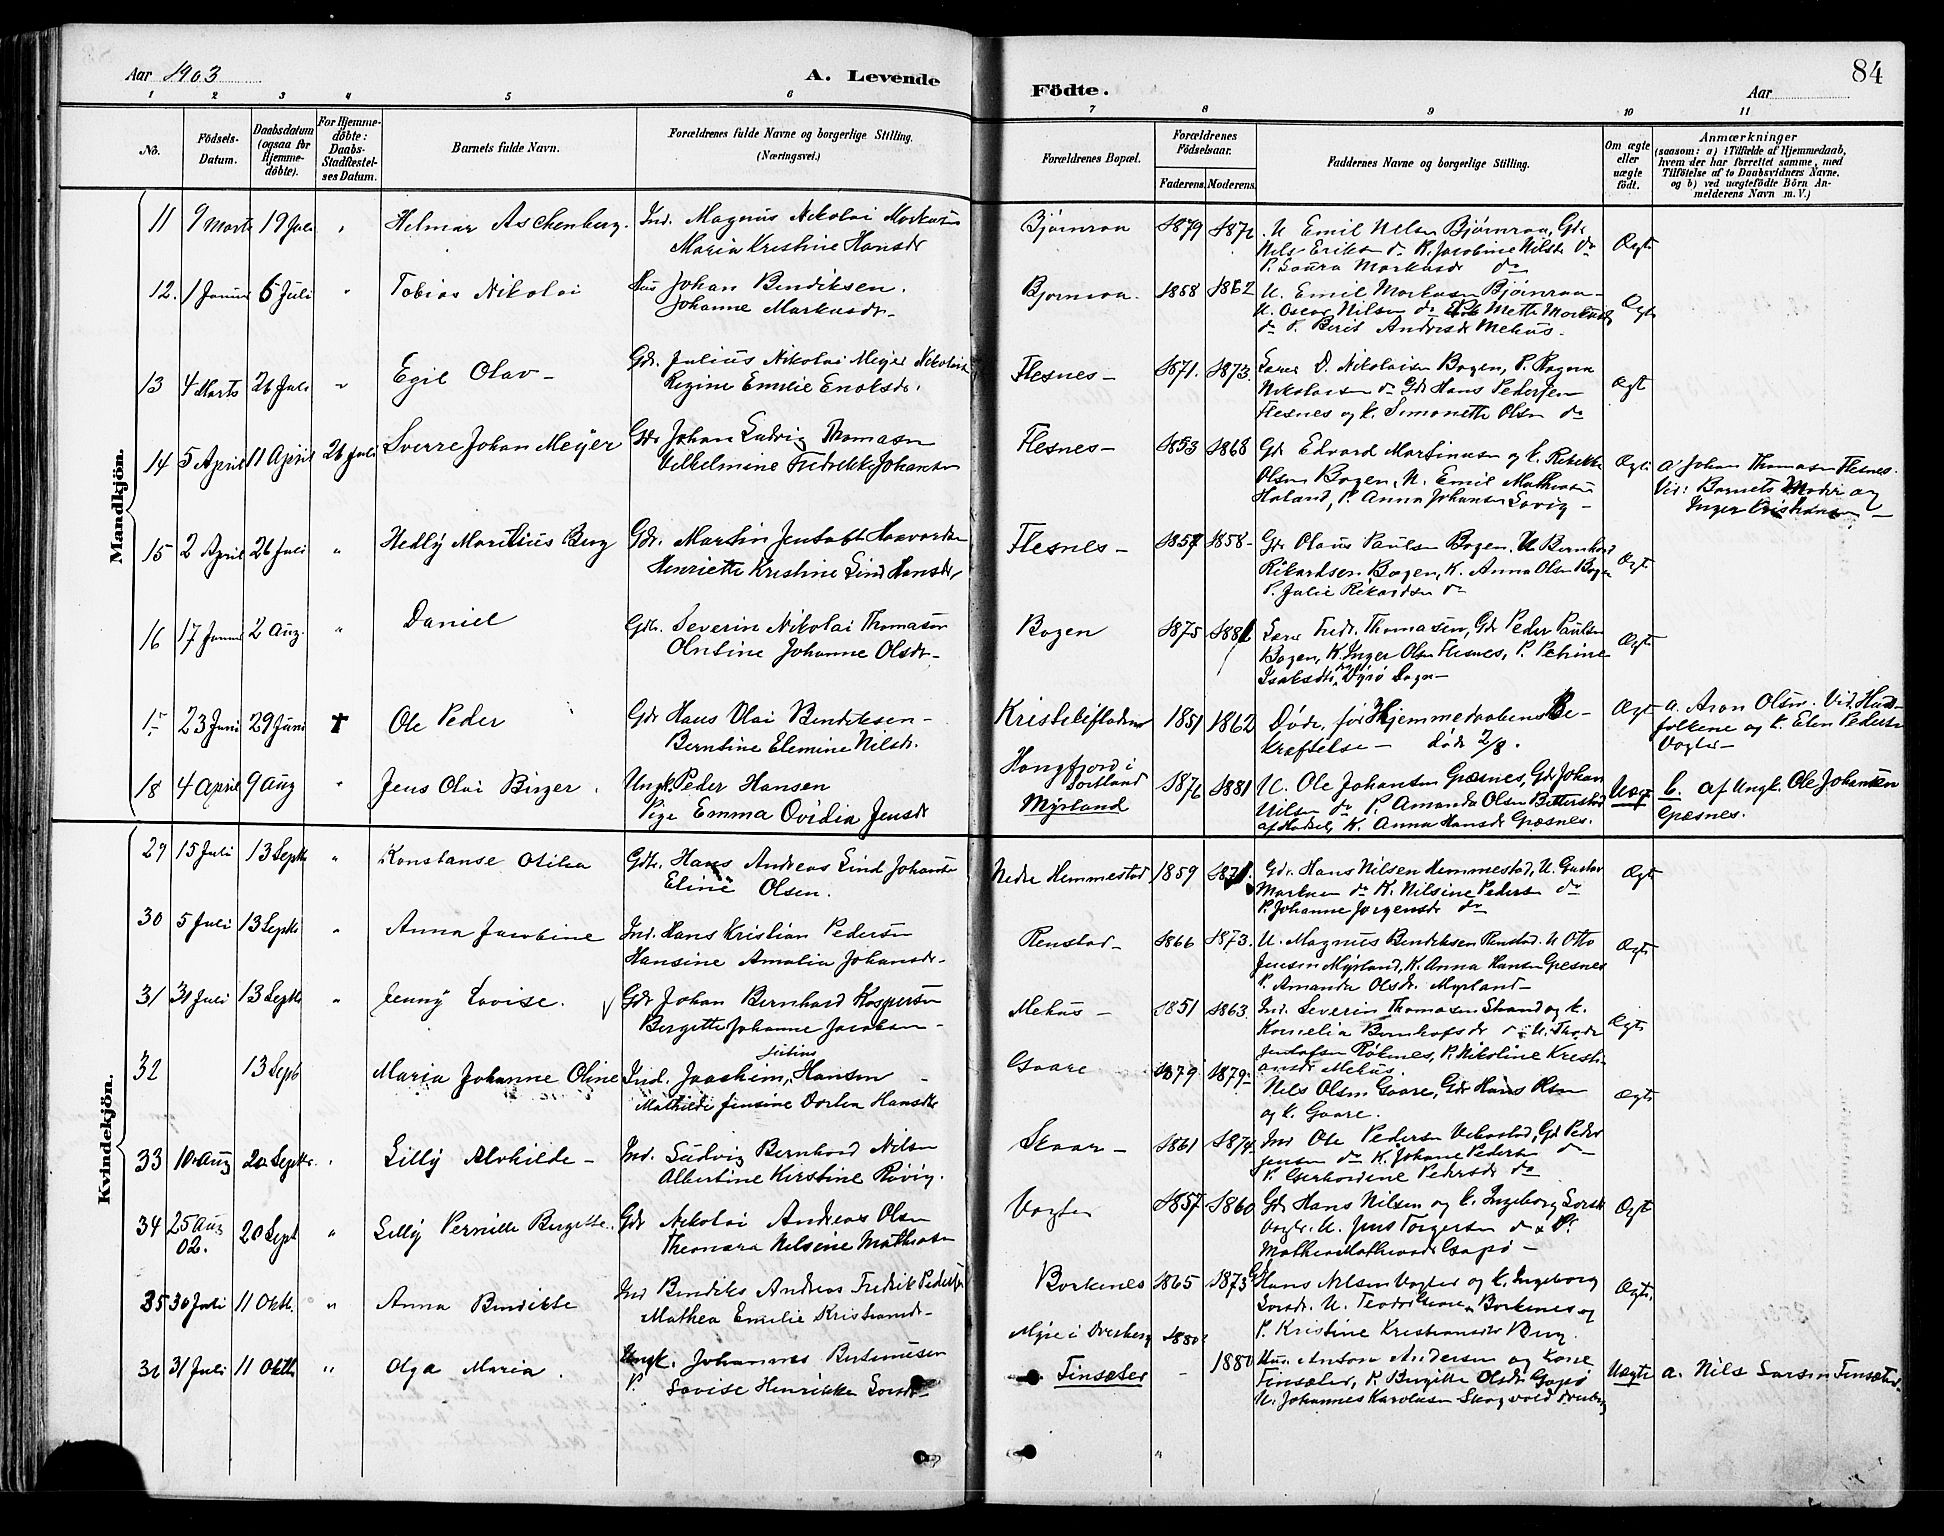 Aar 1903
A. Levende
Födte.
84
Aar
1 2 3 4 5 6 7 8 9 10 11
No.
Födsels-Datum.
Daabsdatum (ogsaa for Hjemme-döbte).
For Hjemme-döbte: Daabs-Stadfæstel-ses Datum.
Barnets fulde Navn.
Forældrenes fulde Navne og borgerlige Stilling. (Næringsvei.)
Forældrenes Bopæl.
Forældrenes Födselsaar.
Faderens. Moderens.
Faddernes Navne og borgerlige Stilling.
Om ægte eller uægte födt.
Anmærkninger
(saasom: a) i Tilfælde af Hjemmedaab, hvem der har forrettet samme, med Tilföielse af to Daabsvidners Navne, og b) ved uægtefödte Börn An-melderens Navn m. V.)
Mandkjön.
11 9 Marts 19 Juli " Helmar Aschenberg. Ind. Magnus Nikolai Markusen
Maria Kristine Hansdr
Bjørnraa 1879 U. Emil Nilsen Bjørnraa, Gdr
Nils Eriksen do K. Jacobine Nilsdr do
P. Laura Markusdr do
Ægte
12. 1 Januar 6 Juli " Tobias Nikolai Hus Johan Bendiksen.
Johanne Markusdr.
Bjørnraa. 1858 1862 U. Emil Markusen Bjørnraa
U. Oscar Nilsen do Mette Markusdr
do P. Berit Andersdr Mehus.
Ægte
13 4 Marts 26 Juli " Egil Olav Gdr. Julius Nikolai Meyer Nikolaisen
Regine Emilie Enoksdr.
Flesnes 1871. 1873. Lærer D. Nikolaisen Bogen, P. Ragna
Nikolaisen do Gdr Hans Pedersen
Flesnes og k. Simonette Olsen do
Ægt
14 5 April 11 April 26 Juli Sverre Johan Meyer Gdr Johan Ludvig Thomasen
Vilhelmine Fredrikke Johansen
Flesnes 1853 1868 Gdr Edvard Martinusen og k. Rebekka
Olsen Bogen, U. Emil Mathisen
Haland, P. Anna Johansen Lovig
Ægte a Johan Thomasen Flesnes.
Vid: Barnets Moder og
Inger Kristiansen
15 2 April 26 Juli " Hedly Moritius Berg Gdr. Martin Jentoft Haavorsen
Henriette Kristine Lind Hansdr
Flesnes 1857 1858 Gdr Olaus Paulsen Bogen. U Bernhard
Rikardsen Bogen, K. Anna Olsen Bogen
P. Julie Rikardsen do
Ægt.
16 17 Januar 2 Aug. " Daniel Gdr. Severin Nikolai Thomasen
Olntine Johanne Olsdr
Bogen 1875 1881 Lærer Fredr. Thomasen, Gdr Peder Paulsen
Bogen, K. Inger Olsen Flesnes, P. Petrine
Isaksdr, Dyrø Sogn
Ægte
23 Juni 29 Juni † Ole Peder Gdr Hans Olai Bendiksen
Berntine Elemine Nilsdr.
1851 1862 Døde, før Hjemmedaabens Be-
kræftelse død 2/8.
Ægt a. Aron Olsen. Vid. Hus-
folkene og k. Elen Pedersen
Vogter
18 4 April 9 Aug " Jens Olai Birger. Ungk. Peder Hansen
Pige Emma Ovidia Jensdr
Hongfjord i Sortland
Myrland
1876 1881 U. Ole Johansen Græsnes, Gdr Johan
Nilsen do P. Amanda Olsen Bitterstad
af Hadsel, K. Anna Hansdr Græsnes.
Uægt b. af Ungk. Ole Johansen
Græsnes.
Kvindekjön.
29 15 Juli 13 Septb " Konstanse Otilia Gdr. Hans Andreas Lind Johansen
Eline Olsen.
Nedre Hemmestad 1859 1871. Gdr. Hans Nilsen Hemmestad, U. Gustav
Markusen do K. Nilsine Pedersen do
P. Johanne Jørgensdr do
Ægt
30 5 Juli 13 Septb " Anna Jacobine Ind. Hans Kristian Pedersen
Hansine Amalia Johansdr.
Renstad 1866 1873. U. Magnus Bendiksen Renstad. U Otto
Jensen Myrland, K. Anna Hansen Græsnes
P. Amanda Olsdr. Myrland
Ægt
31 31 Juli 13 Septb " Jenny Lovise. Gdr Johan Bernhard Kaspersen
Bergitte Johanne Jacobsen
Mehus 1851 1863. Ind. Severin Thomasen Strand og k.
Kornelia Bernhofsdr do U. Thodr
Jentofsen Røknes, P. Nikoline Kristi-
ansdr Mehus.
Ægt
32 13 Septb Maria Johanne Oline Ind. Joachim Hansen
Mathilde Jensine Dorthea Hansdr
Gaare 1879 1879 Nils Olsen Gaare, Gdr Hans Olsen
og k. Gaare.
Ægte
33 10 Aug 20 Septb. Lilly Alvhilde Ind. Ludvig Bernhard Nilsen
Albertine Kirstine Røvig.
Skaar 1861 1874 Ind Ole Pedersen Vikestad, Gdr Peder
Jensen do K. Johane Pedersen do
P. Gerhardine Pedersdr do
34 25 Aug 02. 20 Sept " Lilly Pernille Bergitte. Gdr Nikolai Andreas Olsen
Theonora Nilsine Mathisen
Vogter 1857 1860 Gdr Hans Nilsen og k. Ingeborg Larsdr
Vogter. U. Jens Torgersen do P.
Mathea Mathisdr Gapø
Ægt
35 30 Juli 11 Oktb. " Anna Bendikte Ind Bendiks Andreas Fredrik Pedersen
Mathea Emilie Kristiansdr
Borkenes 1865 1873 Gdr Hans Nilsen Vogter og k. Ingeborg
Larsdr. U. Teodor Borkenes og
P. Kristine Kristiansdr Berg.
Ægte
36 31 Juli 11 Oktb " Olga Maria. Ungk. Johannes Bertinusen
P. Lovise Henrikke Larsdr
Myre i Dverberg 1880
Finsæter 1880 Hus. Anton Andersen og Kone
Finsæter, P. Birgitte Olsdr Gapø
U. Johannes Karolusen Skogvold Dverberg
Uægte a. Nils Larsen Finsæter